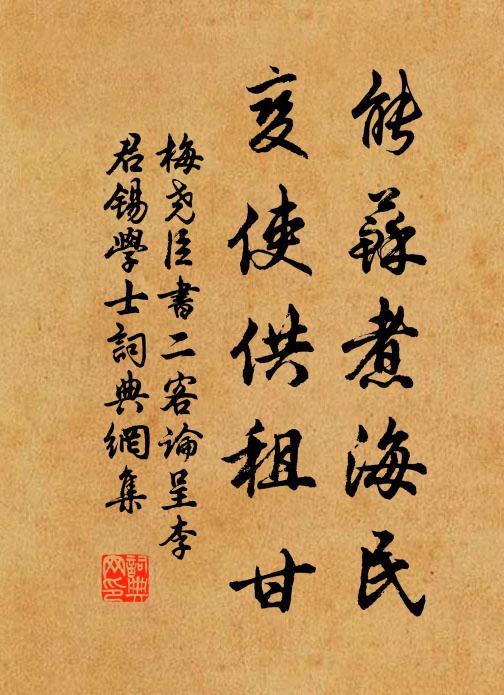 能蘇煮海民
变使供租甘
梅堯臣書二客論呈李
君錫學士詞典網集
詞典
网印